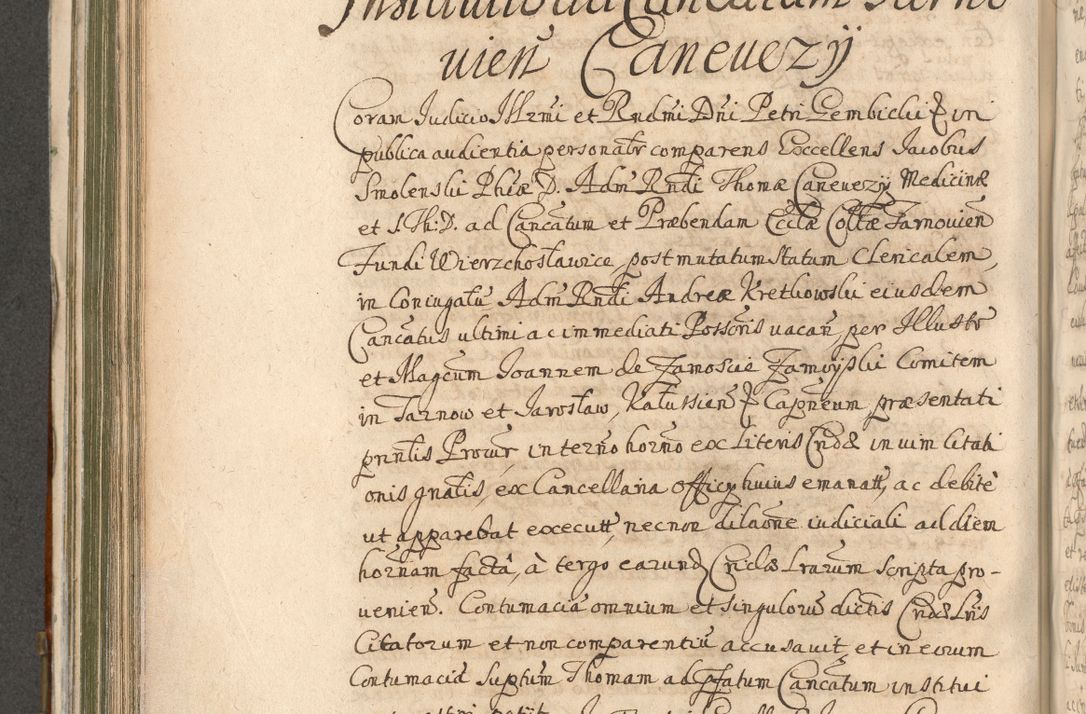 Institutio ad Cancatum Tarno
uien̄ Caneuezÿ
Coram Judicio Illrm̄i et Rndm̄i Dn̄i Petri Gembiclii & in
publica audientia personalr̄ comparens Excellens Jacobus
Smolenski Phiæ D. Adm̄ Rndī Thomæ Caneuezÿ Medicinæ
et S. Th: D. ad Cancatum et Præbendam Ecclæ Collæ Tarnouien̄
Fundi Wierzchosławice, post mutatum statum Clericalem,
in Coniugalē Adm̄ Rndī Andreæ Kretkowski eiusdem
Cancatus ultimi ac immediati Possoris uacan̄ per Illustr̄
et Magcum Joannem de Zamoscie Zamoyski Comitem
in Tarnow et Jarosław, Kałussien̄ & Capneum præsentati
pnn̄lis Procur̄, in termō hornō ex Literis Cndæ in uim Citati
onis gnālis, ex Cancellaria Officÿ huius emanatt, ac debitè
ut apparebat executt, necnon dilaōne iudiciali ad diem
hornam factâ, à tergo earund Cnclæ Lrarum scripta pro-
uenien̄. Contumaciā omnium et singulorū dictis Cndæ Lris
Citatorum et non comparentiū accusauit, et in eorum
Contumaciā suptum Thomam ad pfatum Cancatum institui